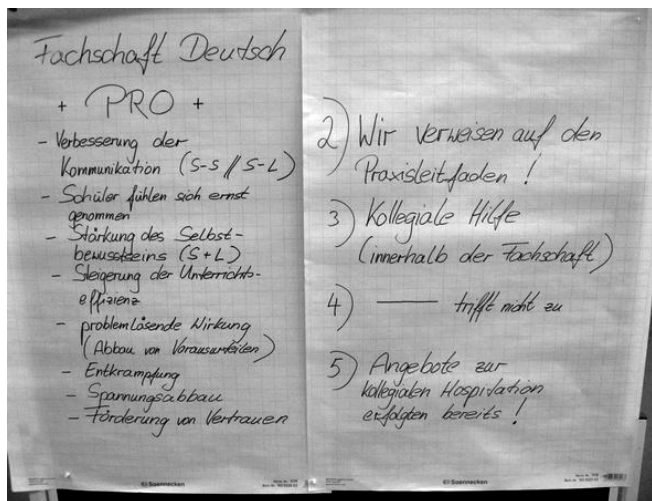 Fachschaft Deutsch
+ PRO +
- Verbesserung der
Kommunikation (S-S // S-L)
- Schüler fühlen sich ernst
genommen
- Stärkung des Selbst-
bewusstseins (S+L)
- Steigerung der Unterrichts-
effizienz
- problemlösende Wirkung
(Abbau von Vorausurteilen)
- Entkrampfung
- Spannungsabbau
- Förderung von Vertrauen
Soennecken
2) Wir verweisen auf den
Praxisleitfaden !
3) Kollegiale Hilfe
(innerhalb der Fachschaft)
4) —— trifft nicht zu
5) Angebote zur
kollegialen Hospitation
erfolgten bereits !
Soennecken